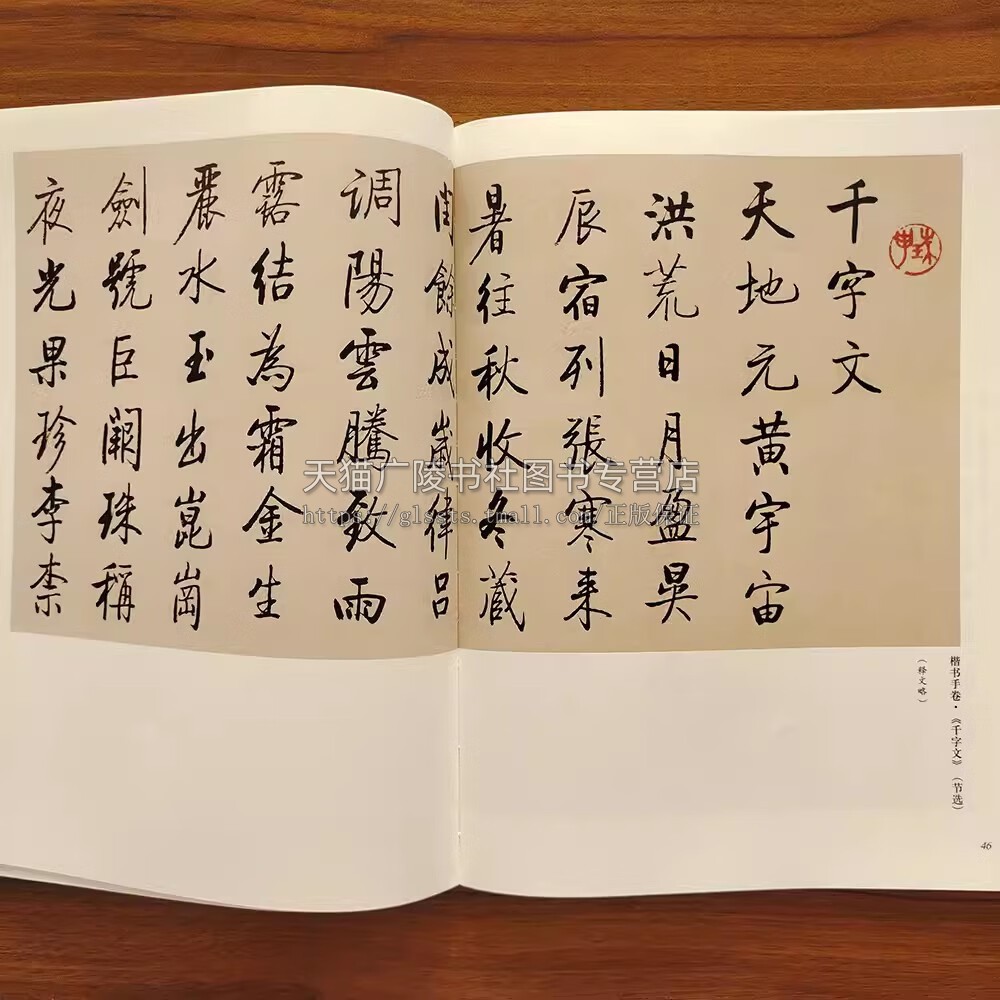 千字文
天地元黄宇宙
洪荒日月盈昃
辰宿列張寒来
暑往秋收冬藏
閏餘成歲律吕
調陽雲騰致雨
露結為霜金生
麗水玉出崑崗
劍號巨闕珠稱
夜光果珍李柰
楷书手卷·《千字文》（节选）
（释文略）
46
天猫广陵书社图书专营店
https://glssts.tmall.com/正版保证